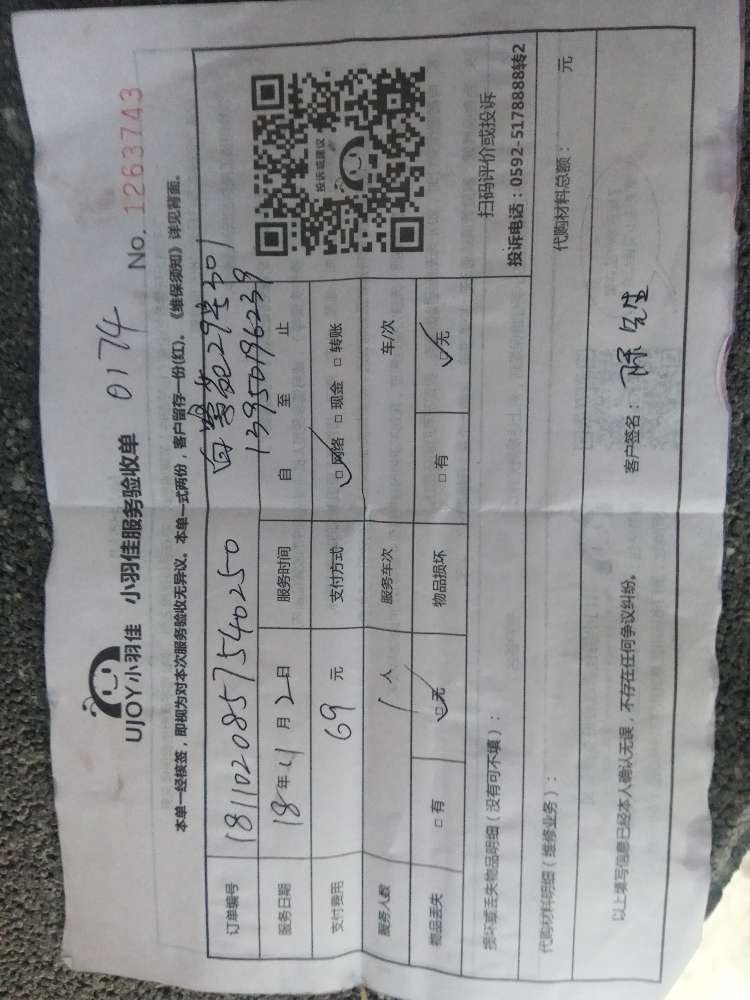 UJOY小羽佳 小羽佳服务验收单 0174 No. 1263743
本单一经核签，即视为对本次服务验收无异议。本单一式两份，客户留存一份(红)。《维保须知》详见背面。
订单编号 181102085754 0250 29 301
13950196239
服务日期 18年11月2日 服务时间 自 至 止
支付费用 69 元 支付方式 □网络 □现金 □转账
服务人数 1 人 服务车次 车/次
物品丢失 □有 □无 物品损坏 □有 □无
投诉或建议
扫码评价或投诉
投诉电话：0592-5178888转2
损坏或丢失物品明细（没有可不填）：
代购材料明细（维修业务）： 代购材料总额： 元
以上填写信息已经本人确认无误，不存在任何争议纠纷。 客户签名： 陈先生